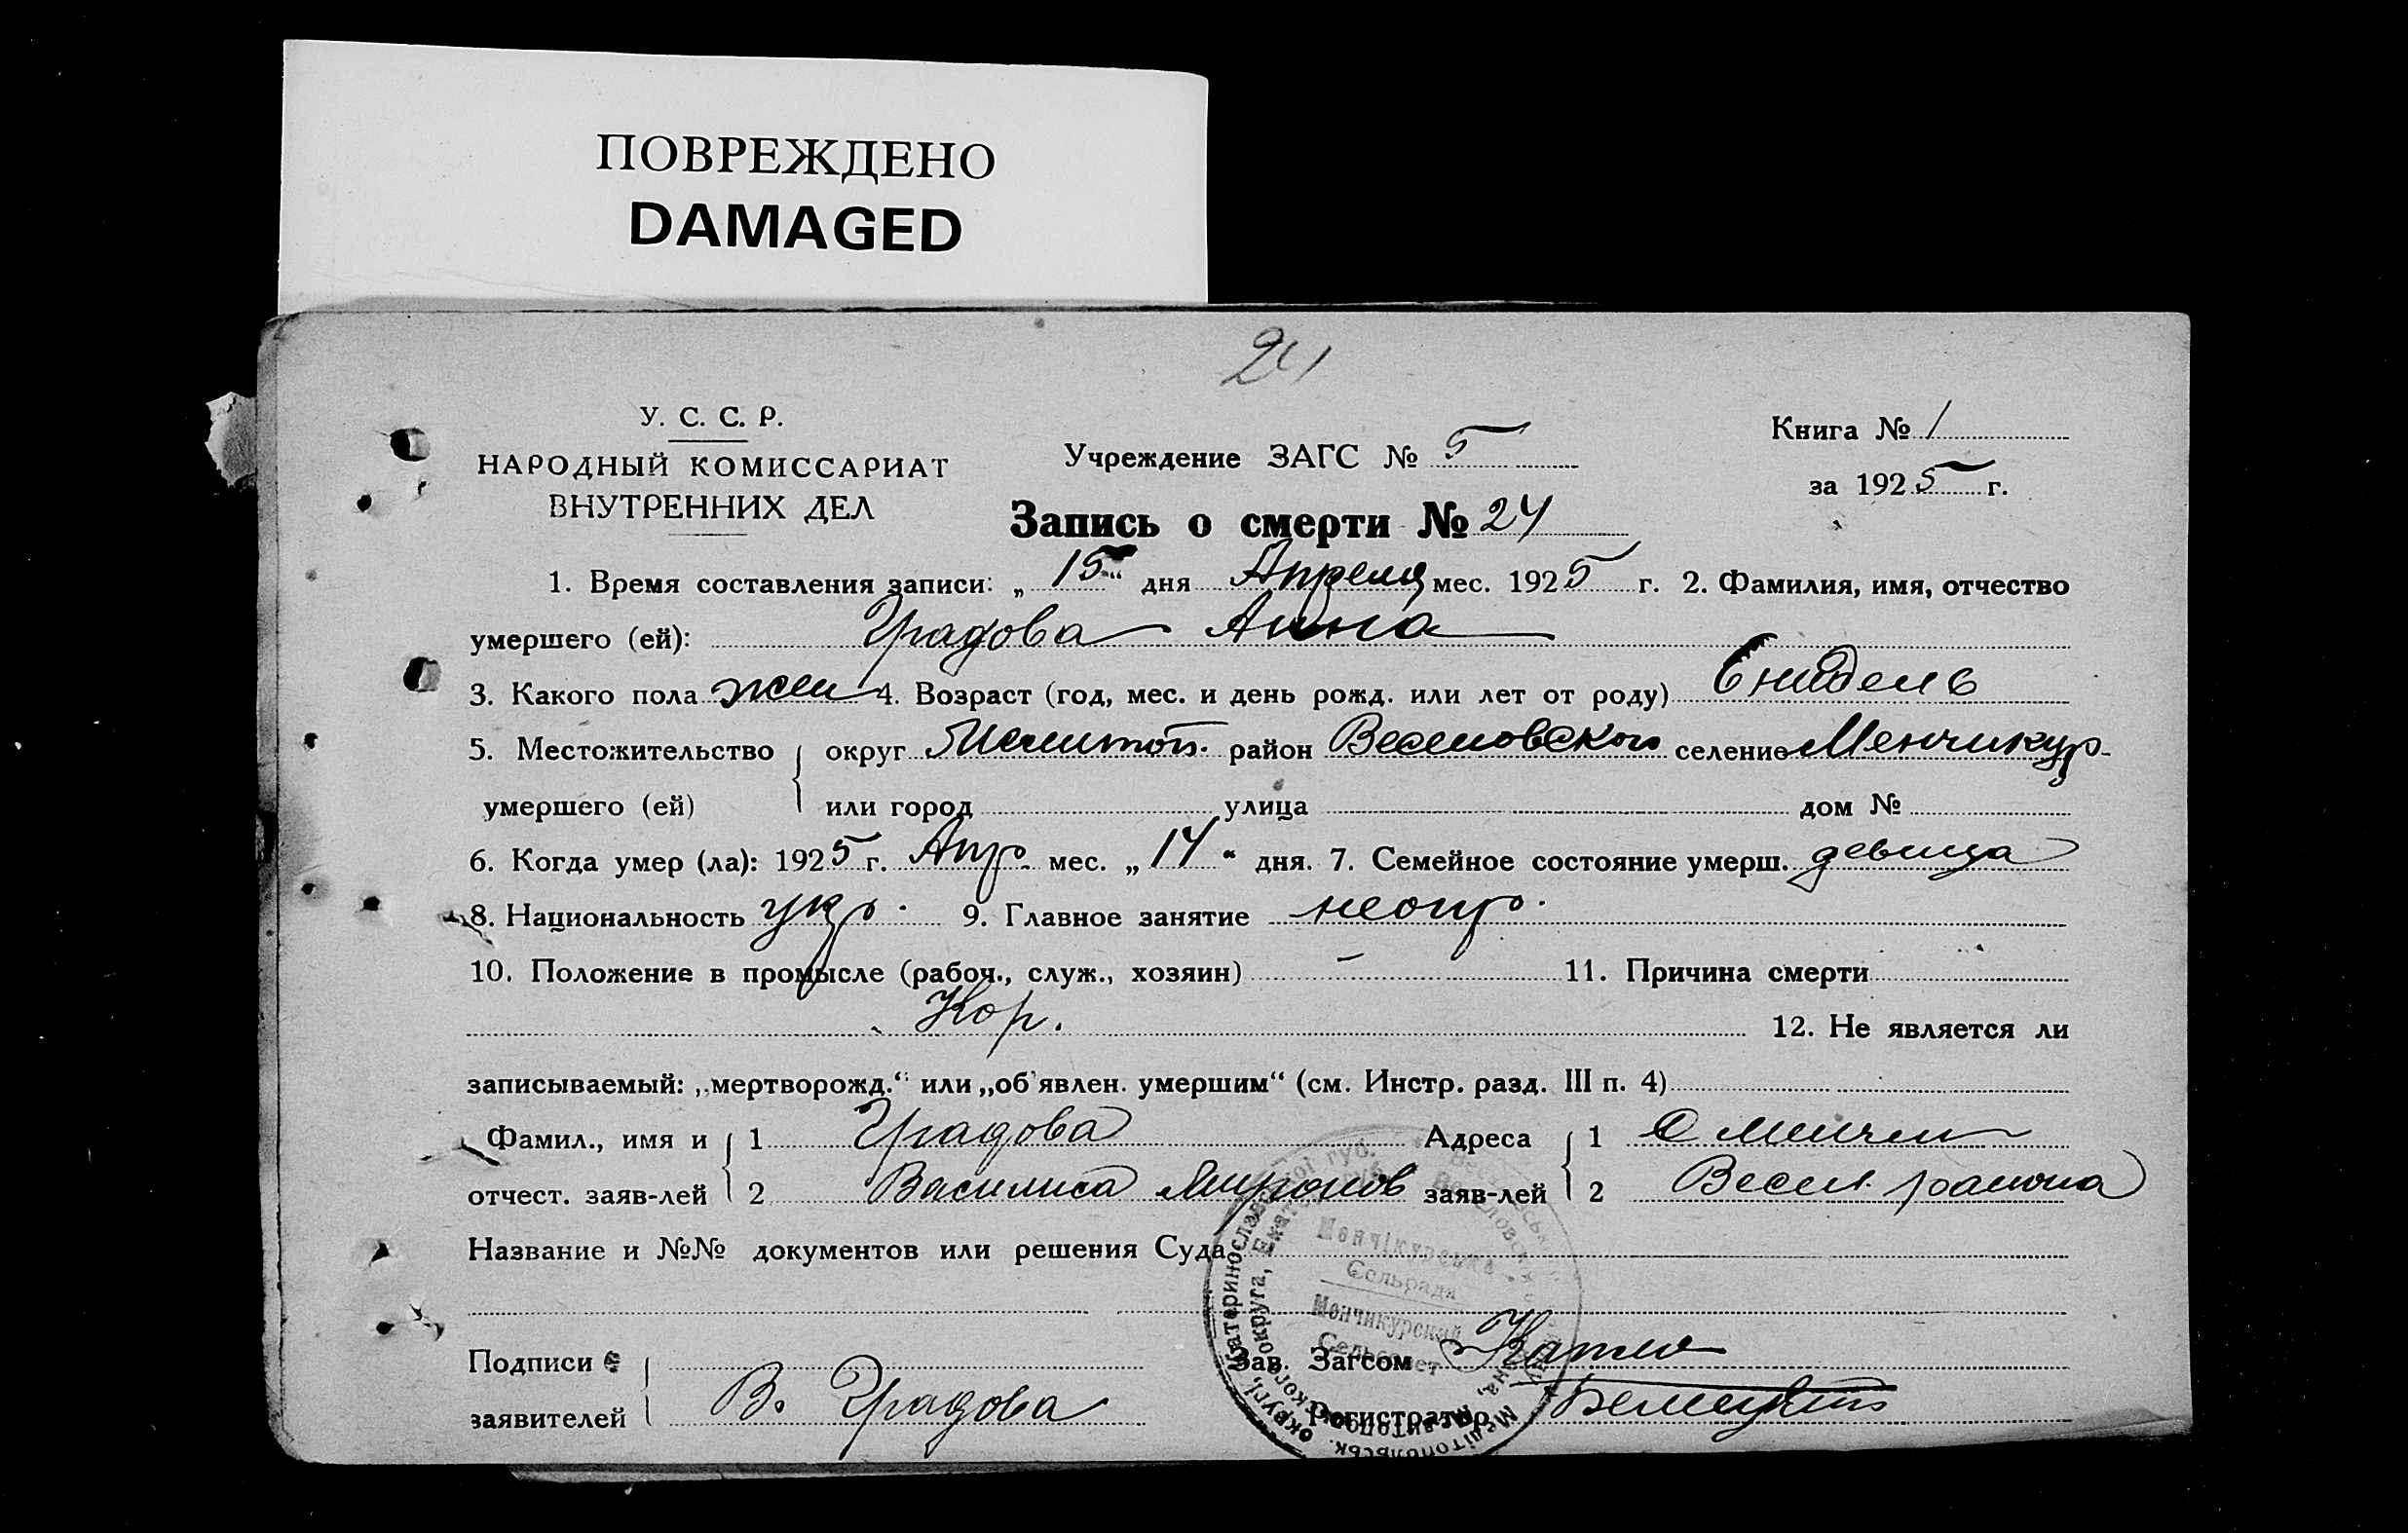 ПОВРЕЖДЕНО
DAMAGED
24
У. С. С. Р.
НАРОДНЫЙ КОМИССАРИАТ
ВНУТРЕННИХ ДЕЛ
Учреждение ЗАГС № 5
Книга № 1
за 1925 г.
Запись о смерти № 24
1. Время составления записи: „15“ дня Апреля мес. 1925 г. 2. Фамилия, имя, отчество
умершего (ей): Градова Анна
3. Какого пола жен 4. Возраст (год, мес. и день рожд. или лет от роду) 6 недель
5. Местожительство округ Мелитоп. район Веселовского селение Менчикур
умершего (ей) или город улица дом №
6. Когда умер (ла): 1925 г. Апр. мес. „14“ дня. 7. Семейное состояние умерш. девица
8. Национальность укр. 9. Главное занятие неопр.
10. Положение в промысле (рабоч., служ., хозяин) — 11. Причина смерти
Кор. 12. Не является ли
записываемый: „мертворожд.“ или „об'явлен. умершим“ (см. Инстр. разд. III п. 4)
Фамил., имя и 1 Градова Адреса 1 С
отчест. заяв-лей 2 Василиса Миронов заяв-лей 2 Весел. района
Название и №№ документов или решения Суда
Менчікурська
Сельрада
Менчикурский
Сельсовет
Подписи Зав. Загсом
заявителей В. Градова Регистратор